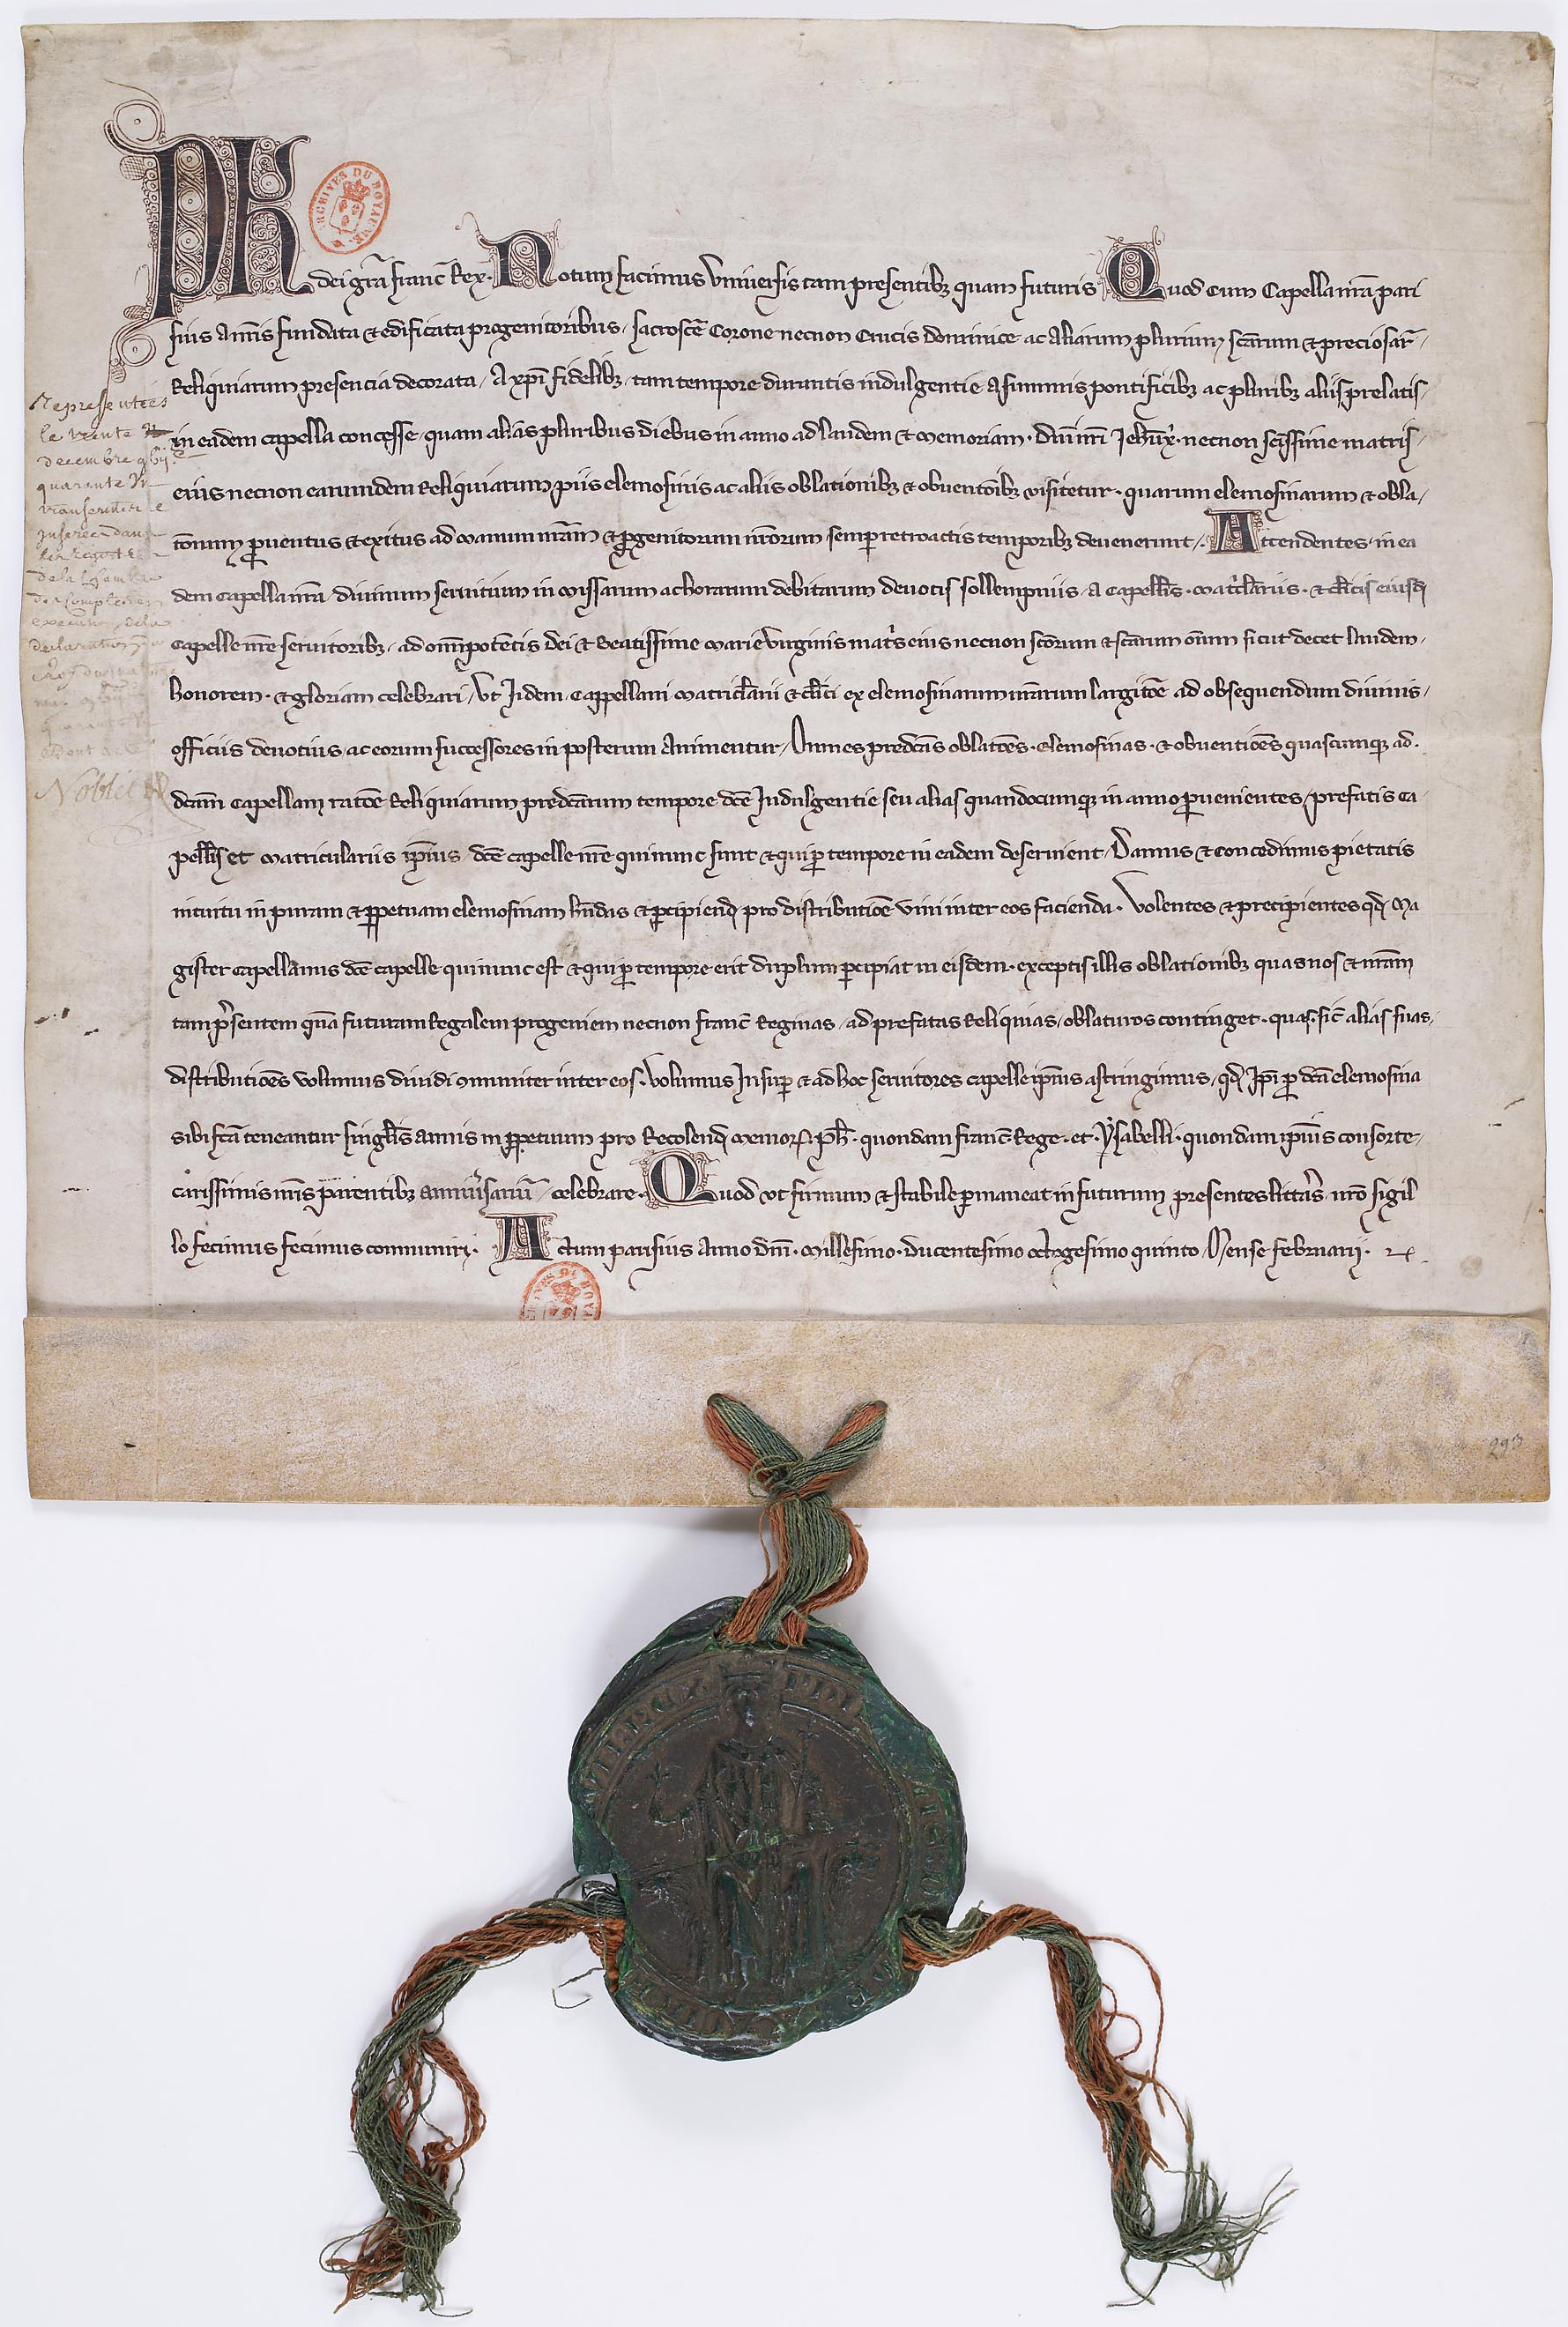 Ph dei gra franc Rex. Notum facimus Vniuersis tam presentibȝ quam futuris Quod cum Capella nra pari
sius a nris fundata & edificata progenitoribus / sacroscē Corone necnon Crucis dominice ac Aliarum plurium scarum & preciosar /
Reliquiarum presencia decorata / A xpi fidelibȝ / tam tempore durantis indulgentie A summis pontificibȝ ac pluribȝ aliis prelatis /
in eadem capella concesse / quam alias pluribus diebus in anno ad laudem & memoriam . dni nri Jehu x . necnon scissime matris /
eius necnon earumdem Reliquiarum piis elemosinis ac aliis oblationibȝ & obuentoibȝ visitetur . quarum elemosinarum & obla /
tonum prouentus & exitus ad manum nram & progenitorum nrorum semper retroactis temporibȝ deuenerunt /. Attendentes / in ea
dem Capella nra diuinum seruitium in missarum ac horarum debitarum deuotis sollempniis / a Capellis . matclariis . & clicis eiusdē
Capelle nre seruitoribȝ / ad omipotentis dei & Beatissime marie virginis matis eius necnon scorum & scarum oium sicut decet laudem /
honorem . & gloriam celebrari / Vt Jidem Cappellani matriclarii & clici ex elemosinarum nrarum largitoe ad obsequendum diuinis /
officiis deuotius / ac eorum successores in posterum Animentur / Omnes predcas oblatoes . elemosinas . & obuentioes quascumqȝ ad .
dcam Capellam ratoe Reliquiarum predcarum tempore dce Jndulgentie seu alias quandocumqȝ in anno prouenientes / prefatis Ca /
pellis et matriculariis ipsius dce capelle nre qui nunc sunt & qui pro tempore in eadem deseruient / Damus & concedimus pietatis
intuitu in puram & perpetuam elemosinam hndas & percipiendas pro distributioe vini inter eos facienda . Volentes & precipientes qd Ma
gister capellanus dce capelle qui nunc est & qui pro tempore erit duplum percipiat in eisdem . exceptis illis oblationibȝ quas nos & nram
tam presentem qua futuram Regalem progeniem necnon franc Reginas / ad prefatas Reliquias / oblaturos continget . quas . sic alias suas /
distributioes volumus diuidi communiter inter eos . Volumus Insuper & ad hoc seruitores capelle ipsius astringimus / qd Jpi pro dca elemosina
sibi fca teneantur singlis annis in perpetuum pro Recolend memor . ph . quondam franc Rege . et . ysabelli . quondam ipsius consorte /
carissimis nris parentibȝ anniuersariū / celebrare . Quod vt firmum & stabile permaneat in futurum presentes litteras nro sigil
lo fecimus fecimus communiri . Actum parisius Anno dni . Millesimo . ducentesimo octogesimo quinto / Mense februarii .
Representées
le trente
decembre
quarante
Noblet
ARCHIVES DU ROYAUME
293